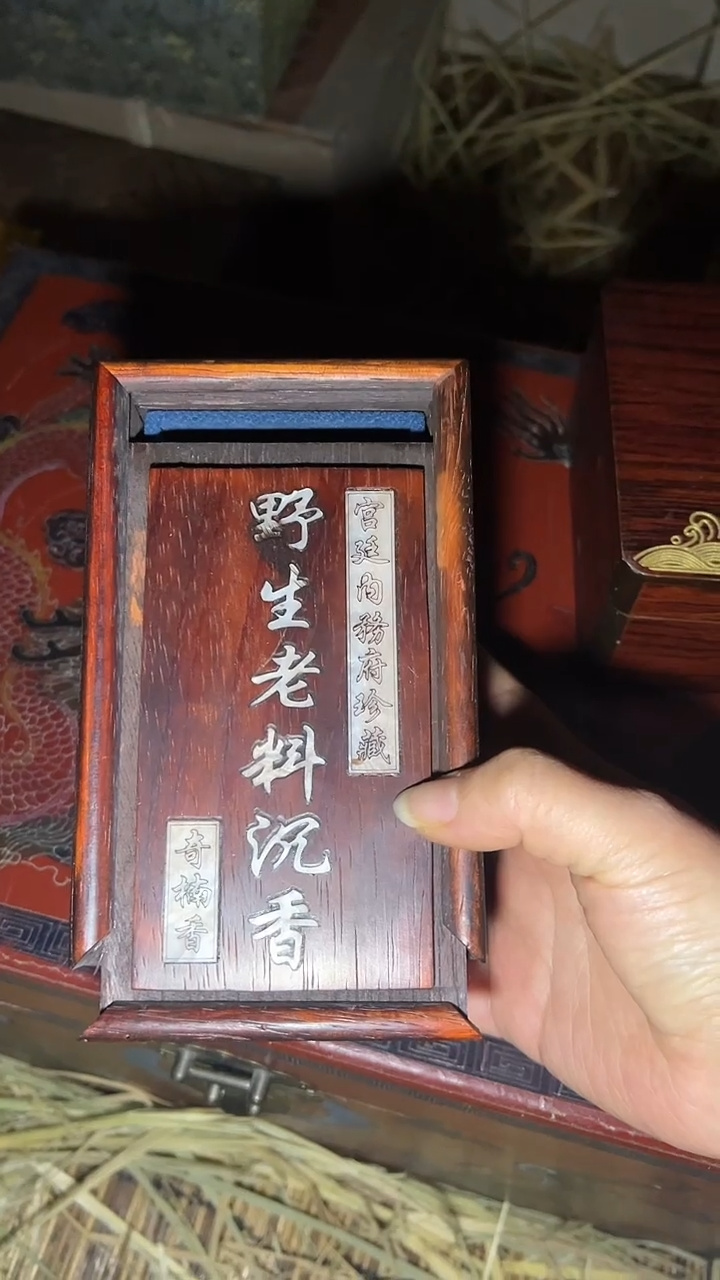 宫廷内務府珍藏
野生老料沉香
奇楠香